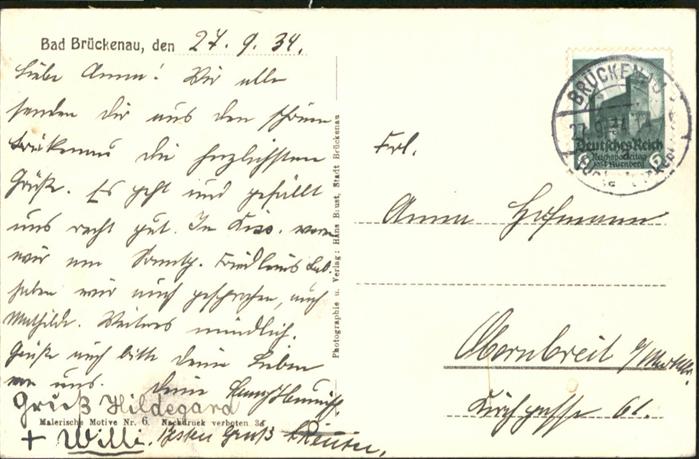 Bad Brückenau, den 27. 9. 34.
Liebe Anna! Wir alle
senden dir aus den schönen
Brückenau die herzlichsten
Grüße. Es geht und gefällt
uns recht gut. In Kiss. waren
wir am Sonntg.
haben wir auch gesprochen, auch
Mathilde. Weiteres mündlich.
Grüße auch bitte deine Lieben
von uns. Deine
Gruß Hildegard
+ Willi. Besten Gruß
Malerische Motive Nr. 6. Nachdruck verboten
Photographie u. Verlag: Hans Brust, Stadt Brückenau
BRÜCKENAU
27.9.34
Deutsches Reich
Reichsparteitag
1934 Nürnberg
Frl.
Anna Hofmann
Obernbreit
Kirchgasse 61.